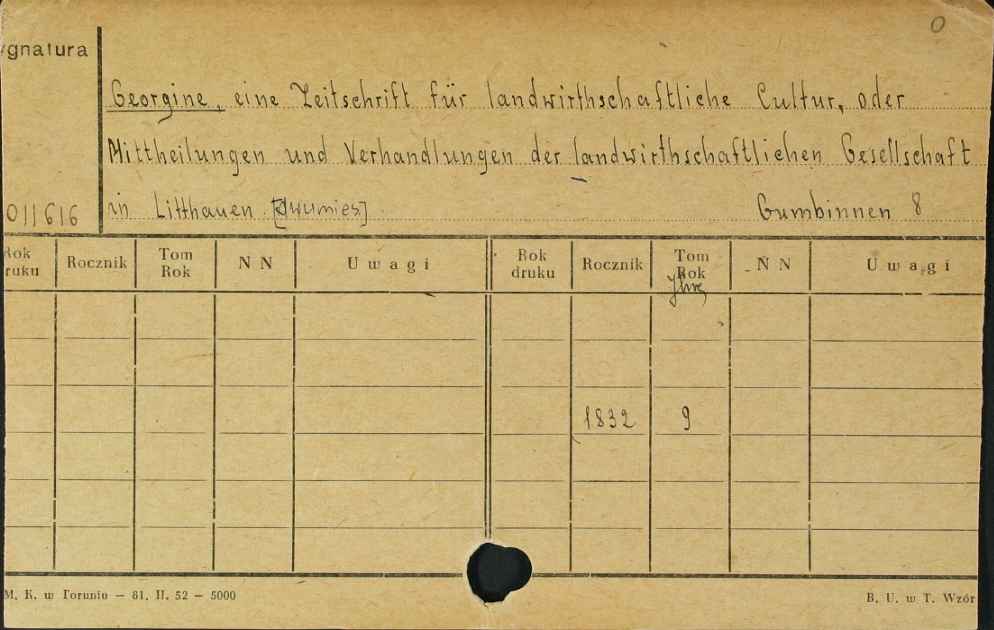 O
ygnatura
Georgine, eine Zeitschrift für landwirthschaftliche Cultur, oder
Mittheilungen und Verhandlungen der landwirthschaftlichen Gesellschaft
011616 in Litthauen [dwumies.] Gumbinnen 8
Rok druku Rocznik Tom Rok N N Uwagi Rok druku Rocznik Tom Rok N N Uwagi
1832 9
M. K. w Toruniu — 81. II. 52 — 5000 B. U. w T. Wzór